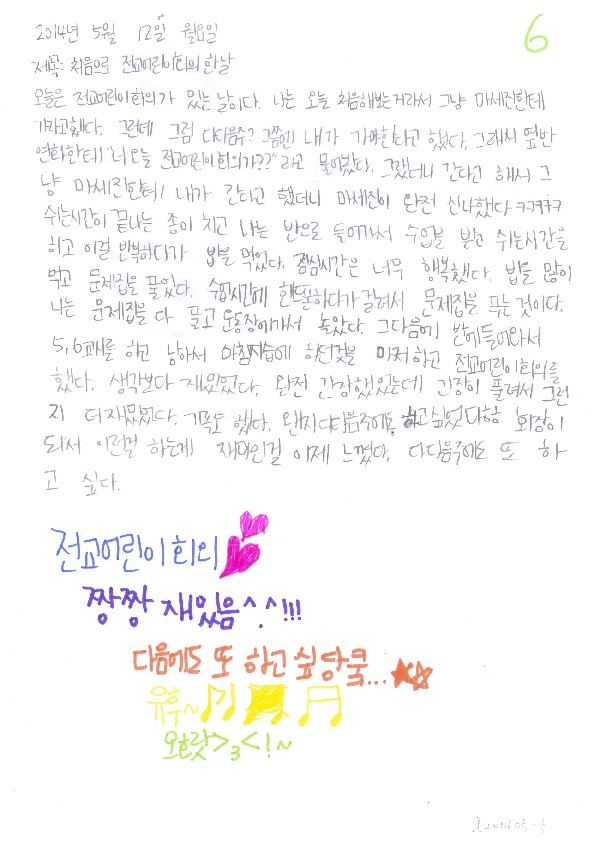 2014년 5월 12일 월요일
6
제목: 처음으로 전교어린이회의 한날
오늘은 전교어린이회의가 있는 날이다. 나는 오늘 처음해보는거라서 그냥 마세진한테
가라고했다. 그런데 그럼 다다음주? 그쯤엔 내가 가야한다고 했다. 그래서 옆반
연화한테 "너 오늘 전교어린이회의가??" 라고 물어봤다. 그랬더니 간다고 해서 그
냥 마세진한테 내가 간다고 했더니 마세진이 완전 신나했당 ㅋㅋㅋㅋㅋ
쉬는시간이 끝나는 종이 치고 나는 반으로 들어가서 수업을 받고 쉬는시간을
하고 이걸 반복하다가 밥을 먹었다. 점심시간은 너무 행복했다. 밥을 많이
먹고 문제집을 풀었다. 수업시간에 핸드폰하다가 걸려서 문제집을 푸는 것이다.
나는 문제집을 다 풀고 운동장에가서 놀았다. 그다음에 반에들어와서
5,6교시를 하고 남아서 아침자습에 하던것을 마저하고 전교어린이회의를
했다. 생각보다 재밌었다. 완전 긴장했었는데 긴장이 풀려서 그런
지 더재밌었다. 기록도 했다. 왠지 다다음주에도 하고싶었다항 회장이
되서 이런걸 하는게 재미인걸 이제 느꼈다. 다다음주에도 또 하
고 싶다.
전교어린이회의
짱짱 재있음^.^!!!
다음에도 또 하고 싶당쿡...
유후~
오호랏>3<!~